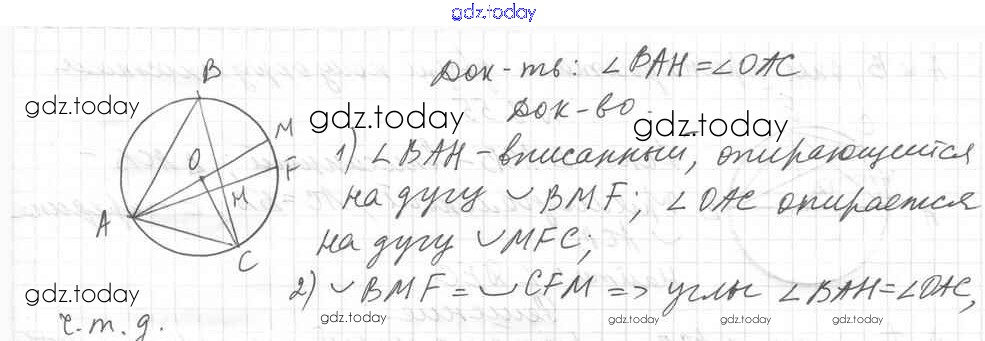 gdz.today
Док-ть: ∠BAH=∠OAC
Док-во.
gdz.today
gdz.today
gdz.today
B
M
O
F
H
A
C
1) ∠BAH-вписанный, опирающийся
на дугу ◡BMF; ∠OAC опирается
на дугу ◡MFC;
2) ◡BMF = ◡CFM => углы ∠BAH=∠OAC,
gdz.today
gdz.today
gdz.today
gdz.today
gdz.today
ч.т.д.